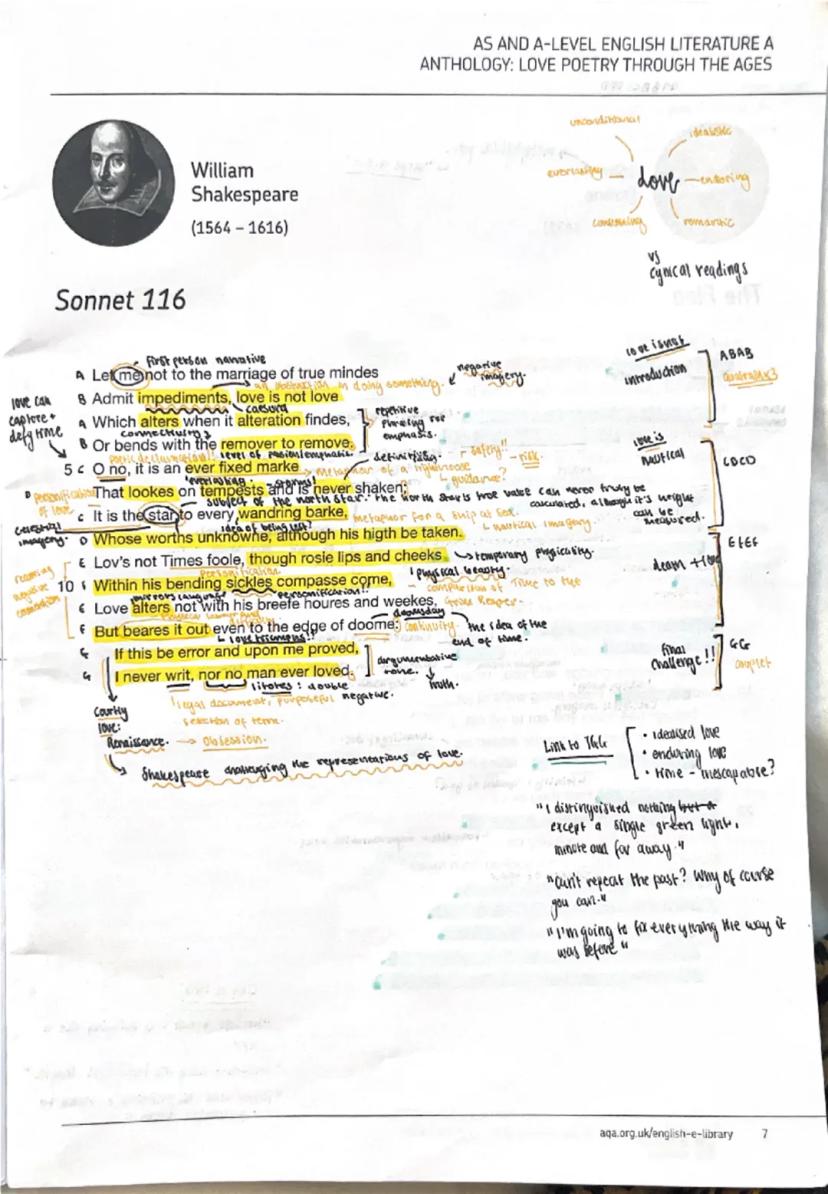 AS AND A-LEVEL ENGLISH LITERATURE A
ANTHOLOGY: LOVE POETRY THROUGH THE AGES
William
Shakespeare
(1564 – 1616)
unconditional
idealistic
everlasting
Love
enduring
consuming
romantic
vs
cynical readings
Sonnet 116
first person narrative
A Let me not to the marriage of true mindes
an obstruction in doing something.
negative
imagery.
B Admit impediments, love is not love
caesura
A Which alters when it alteration findes,
repetitive
phrasing for
emphasis.
B Or bends with the remover to remove.
love can
capture +
defy time
level of passion/emphatic
definitising.
5 C O no, it is an ever fixed marke
metaphor of a lighthouse
guidance?
"safety"
risk
everlasting.
storms!
D That lookes on tempests and is never shaken;
personification
of love
subject of the north star. the north stars true value can never truly be
calculated, although it's height
can be
measured.
C It is the star to every wandring barke,
metaphor for a ship at sea.
nautical imagery.
celestial
imagery.
idea of being lost?
D Whose worths unknowne, although his higth be taken.
E Lov's not Times foole, though rosie lips and cheeks
temporary physicality.
personification
physical beauty
10 F Within his bending sickles compasse come,
comparison of Time to the
Grim Reaper.
personification!!
E Love alters not with his breefe houres and weekes,
doomsday
F But beares it out even to the edge of doome:
continuity
the idea of the
end of time.
love triumphs!!
G If this be error and upon me proved,
G I never writ, nor no man ever loved.
argumentative
tone.
truth.
litotes: double
negative.
legal document, purposeful
selection of term.
Courtly
love:
Renaissance. → Obsession.
Shakespeare challenging the representations of love.
love is not
introduction
ABAB
quatrain x3
love is
nautical
CDCD
death + love
EFEF
final
challenge!!
GG
couplet
Link to TGG
• idealised love
• enduring love
• time - inescapable?
"I distinguished nothing but a
except a single green light,
minute and far away."
"Can't repeat the past? Why of course
you can."
"I'm going to fix everything the way it
was before"
aqa.org.uk/english-e-library 7